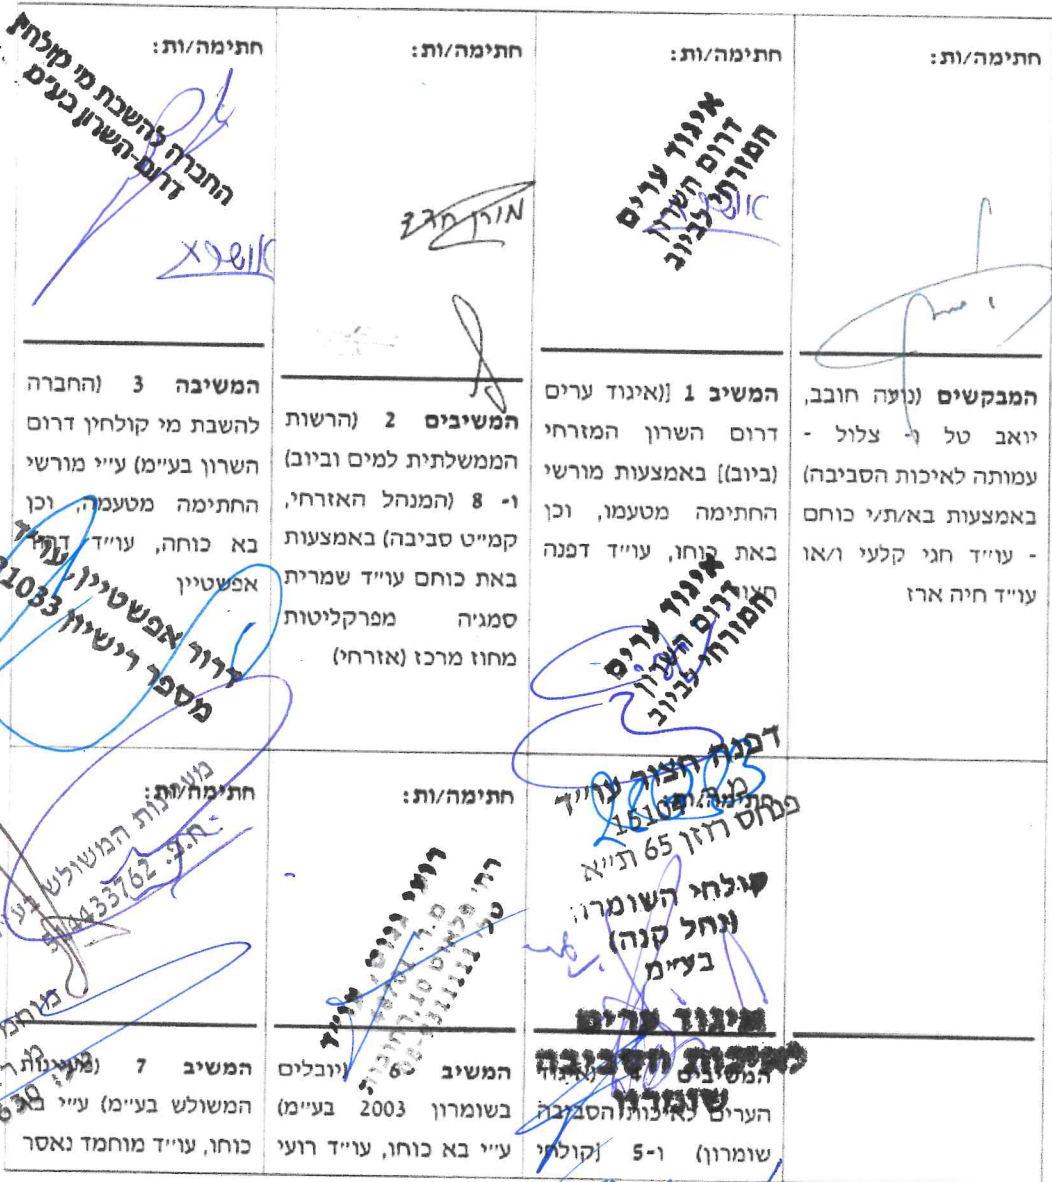 חתימה/ות:
איגוד ערים
דרום השרון
המזרחי לביוב
המבקשים (נועה חובב,
יואב טל ו- צלול -
עמותה לאיכות הסביבה)
באמצעות בא/ת/י כוחם
- עו״ד חגי קלעי ו/או
עו״ד חיה ארז
חתימה/ות:
המשיב 1 [(איגוד ערים
דרום השרון המזרחי
(ביוב)] באמצעות מורשי
החתימה מטעמו, וכן
באת כוחו, עו״ד דפנה
חצור
איגוד ערים
דרום השרון
המזרחי לביוב
חתימה/ות:
מורן חדד
המשיבים 2 (הרשות
הממשלתית למים וביוב)
ו- 8 (המנהל האזרחי,
קמ״ט סביבה) באמצעות
באת כוחם עו״ד שמרית
סמג׳ה מפרקליטות
מחוז מרכז (אזרחי)
חתימה/ות:
החברה להשבת מי קולחין
דרום-השרון בע״מ
המשיבה 3 (החברה
להשבת מי קולחין דרום
השרון בע״מ) ע״י מורשי
החתימה מטעמה, וכן
בא כוחה, עו״ד דרור
אפשטיין
דרור אפשטיין, עו״ד
מספר רישיון 21033
דפנה חצור עו״ד
חתימה/ות:
פנחס רוזן 65 ת״א
קולחי השומרון
(נחל קנה)
בע״מ
איגוד ערים
לאיכות הסביבה
שומרון
המשיבים 4 (איגוד
הערים לאיכות הסביבה
שומרון) ו-5 (קולחי
חתימה/ות:
המשיב 6 (יובלים
בשומרון 2003 בע״מ)
ע״י בא כוחו, עו״ד רועי
חתימה/ות:
מעיינות המשולש בע״מ
ח.פ. 514433762
המשיב 7 (מעיינות
המשולש בע״מ) ע״י בא
כוחו, עו״ד מוחמד נאסר